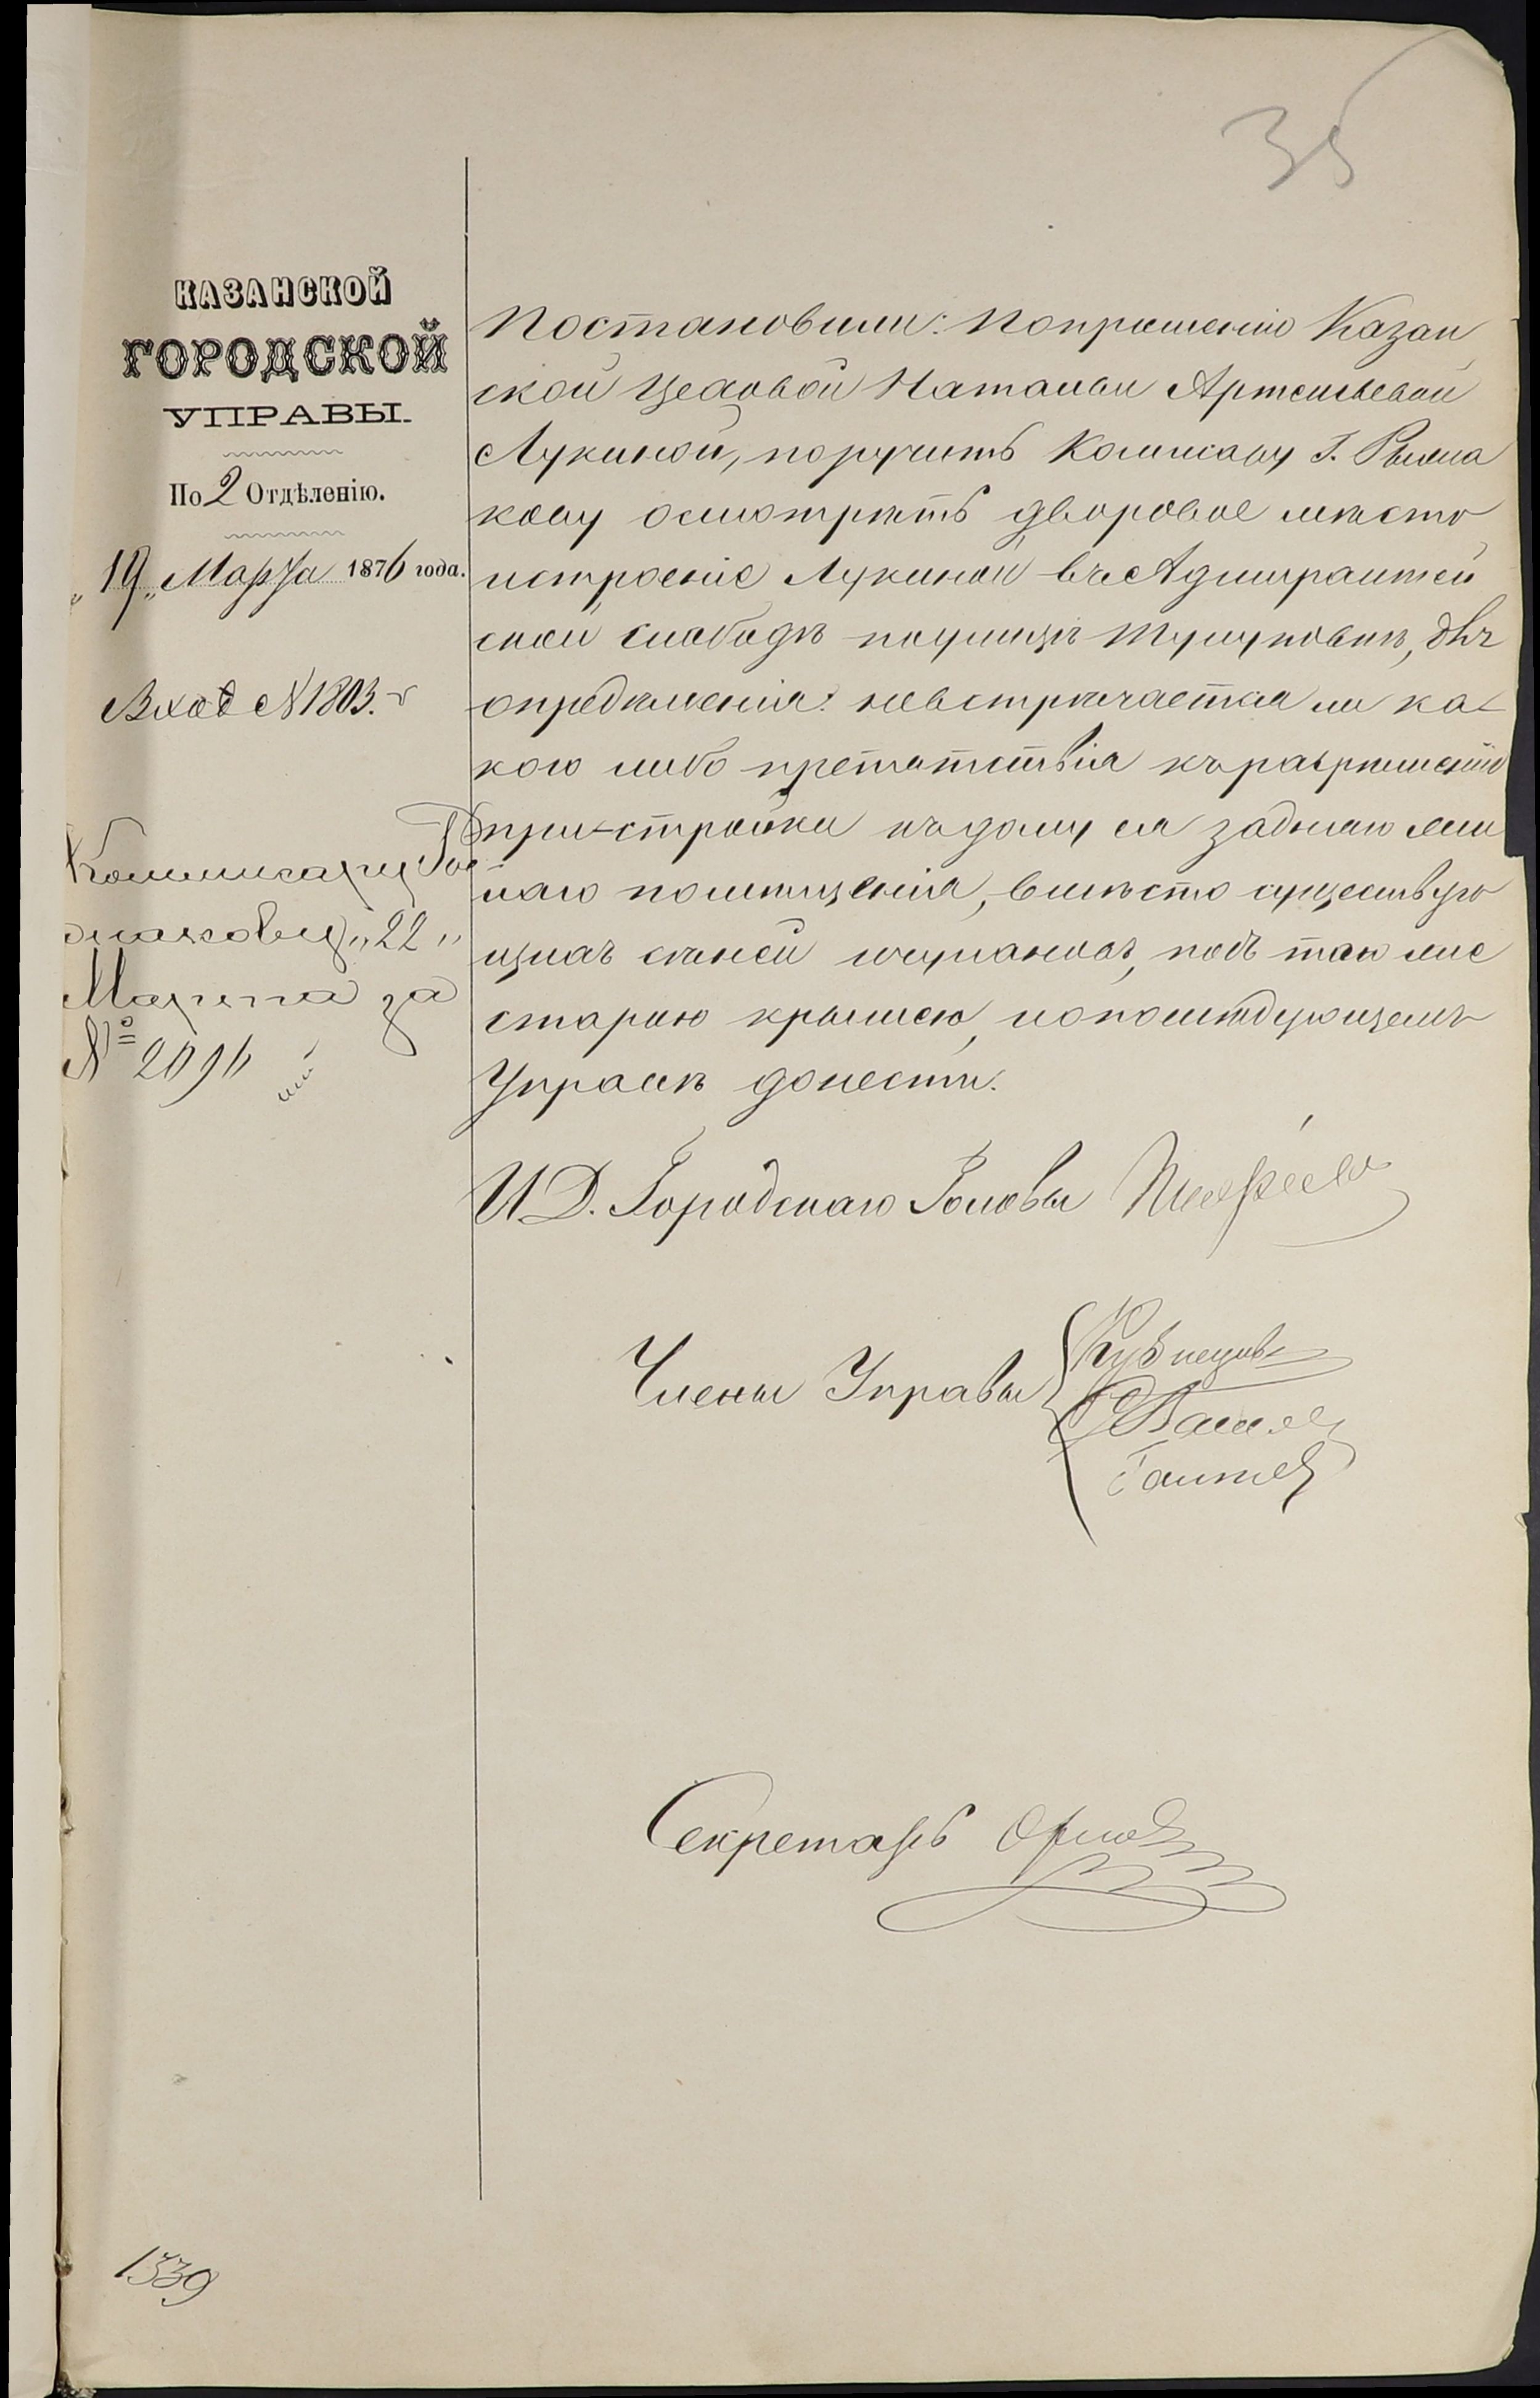 35
КАЗАНСКОЙ
ГОРОДСКОЙ
УПРАВЫ.
По 2 Отдѣленію.
„19„ Марта 1876 года.
Вход № 1803.
Коммисару
„22„
Марта за
№ 2096
Постановили: По прошенію Казан
ской Цеховой Натальи Артемьевой
Лукиной, поручить Комисару Г.
осмотрѣть дворовое мѣсто
и строеніе Лукиной въ Адмиралтей
ской слободѣ по улицѣ
опредѣленія: не встрѣчается ли ка-
кого либо препятствія къ разрѣшенію
пристройки къ дому ея заднаго жи
лаго помѣщенія, вмѣсто существую
щихъ сѣней и чулановъ, подъ тою же
старою крышею, и о послѣдующемъ
Управѣ донести.
И.Д. Городскаго Головы
Члены Управы
Кузнецовъ
Секретарь Орловъ
1339